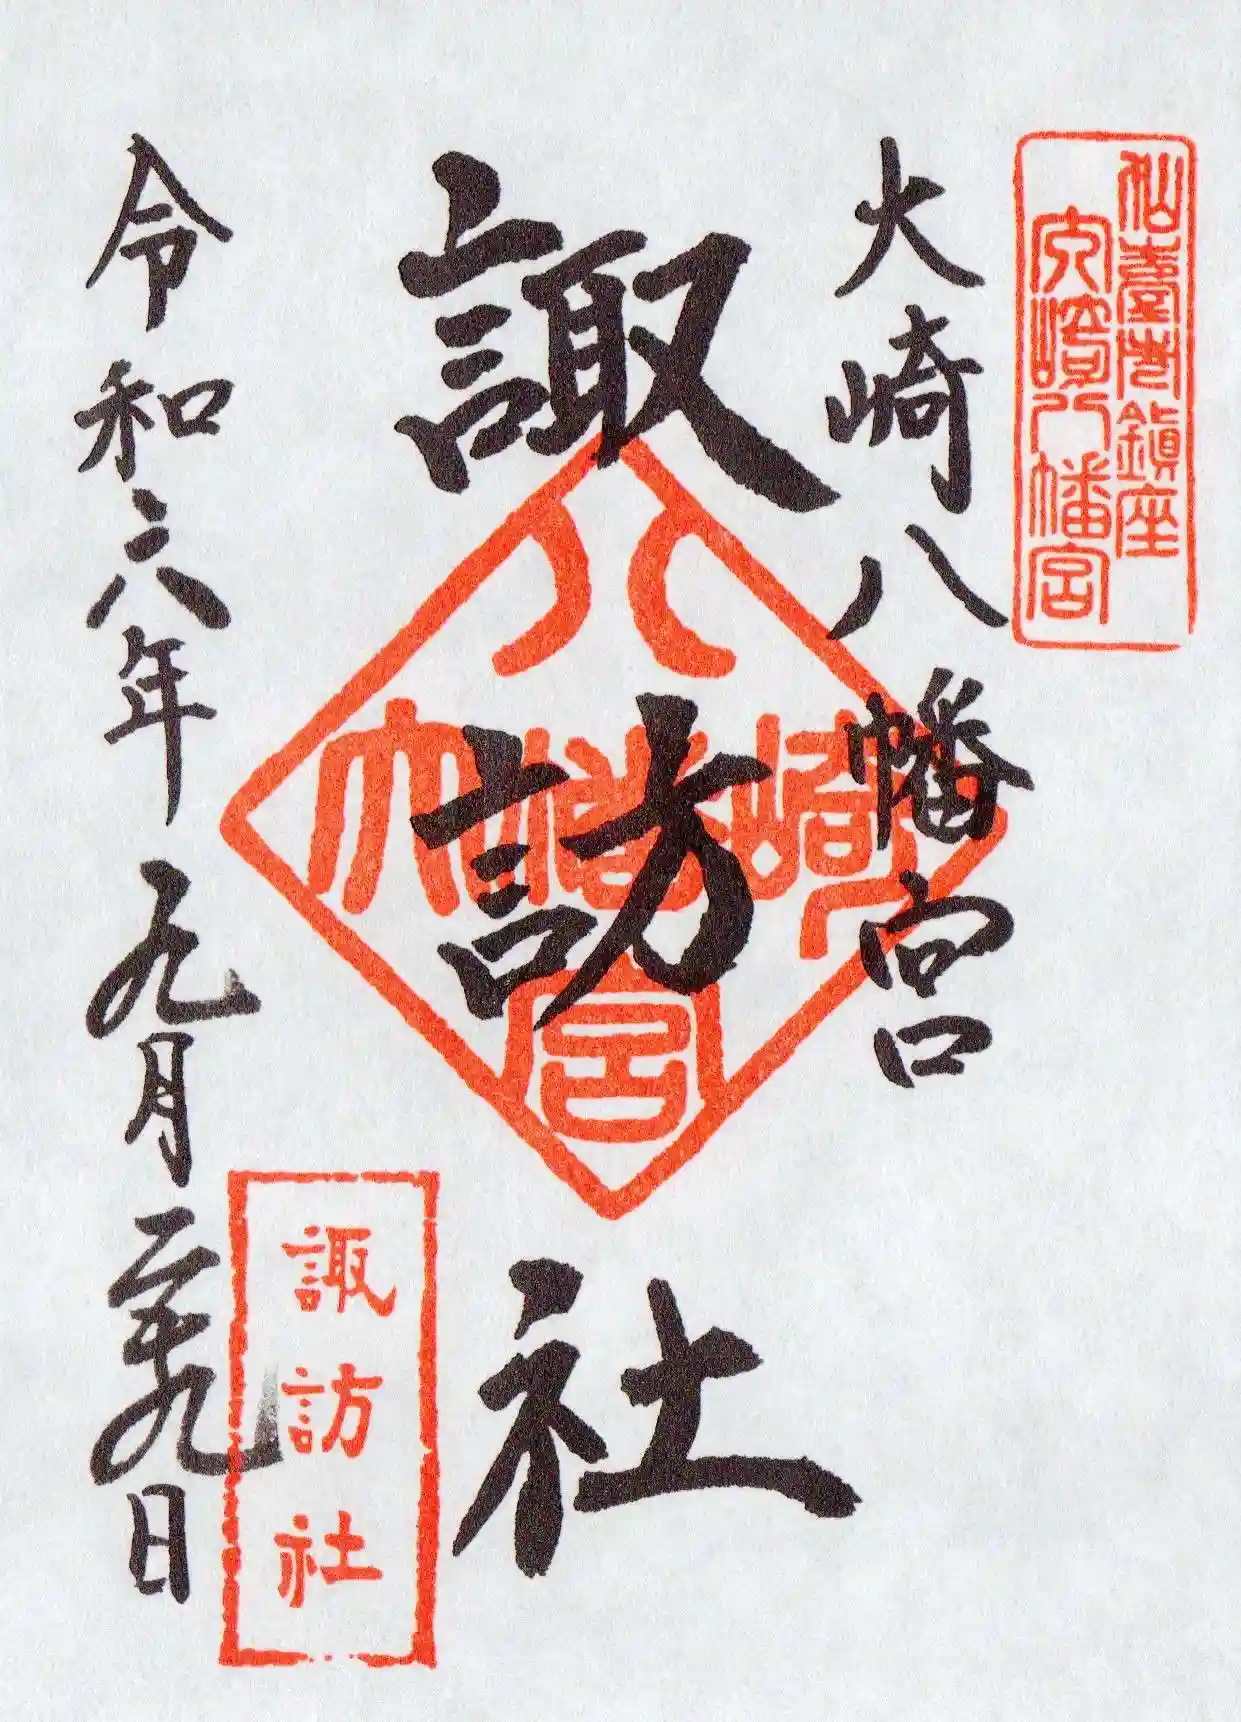 仙臺市鎮座
大崎八幡宮
大崎八幡宮
諏訪社
大崎八幡宮
諏訪社
令和六年九月二十九日